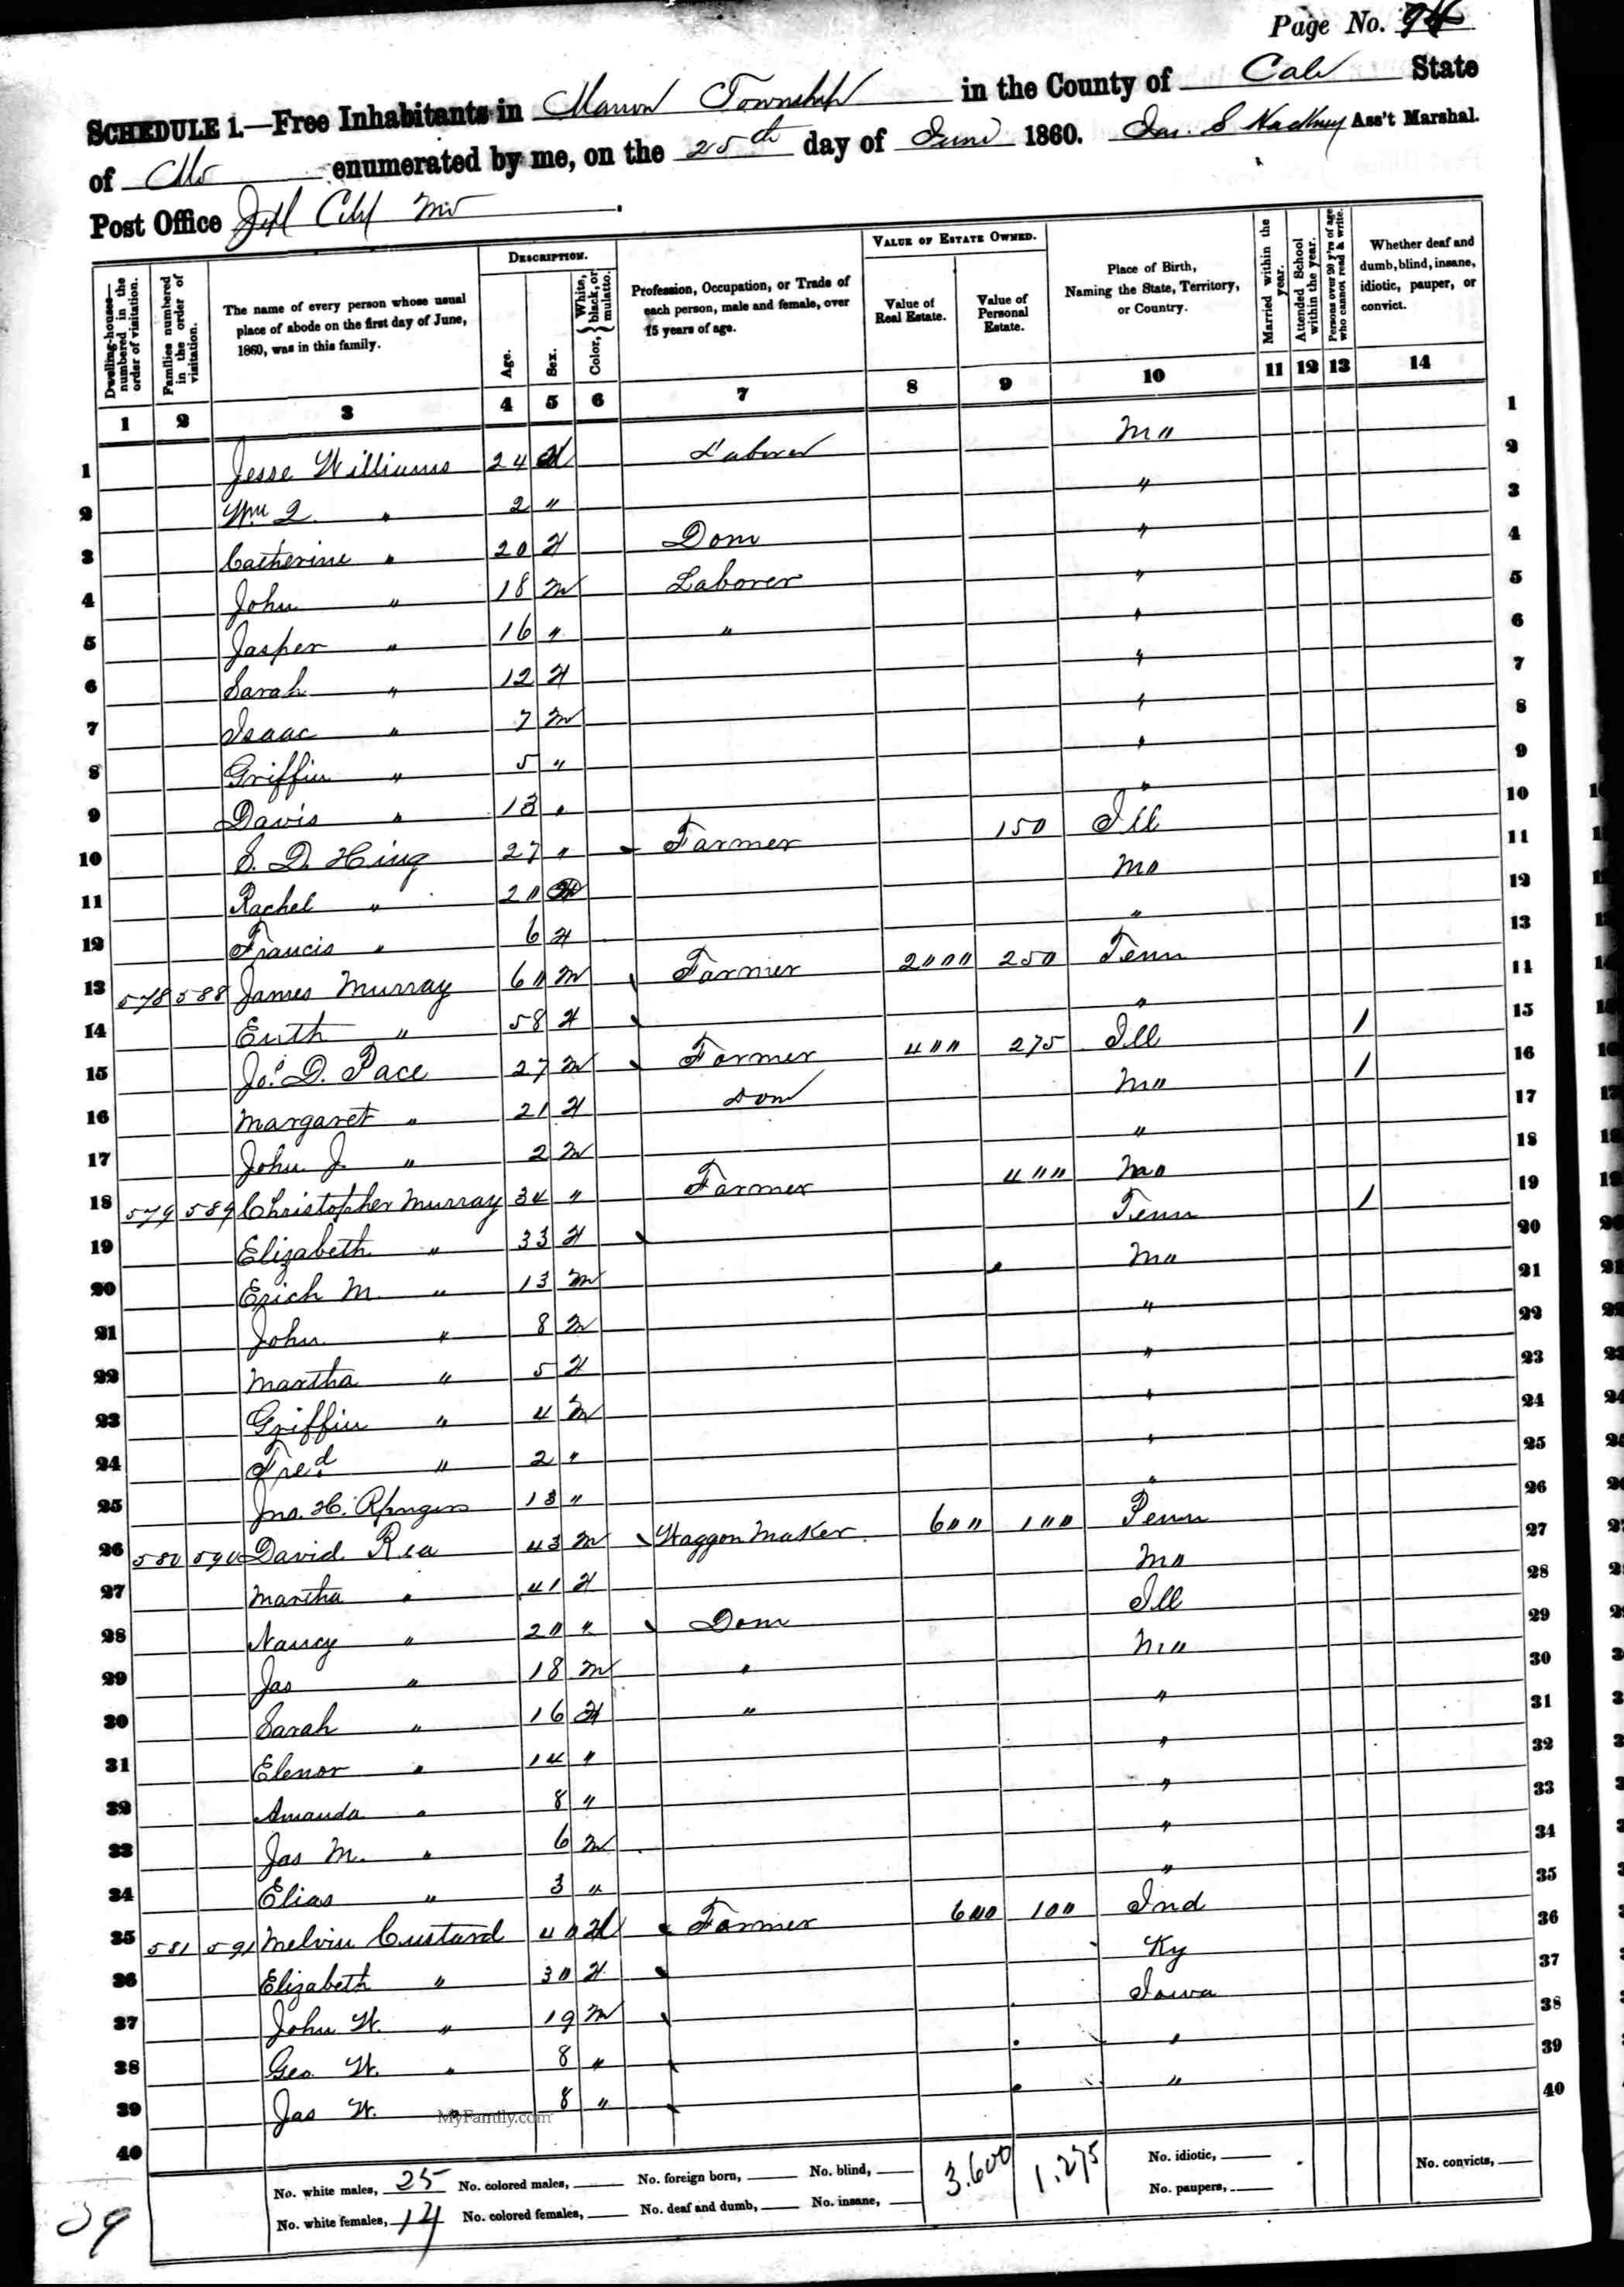 Page No. 94
SCHEDULE 1.—Free Inhabitants in Marion Township in the County of Cole State
of Mo enumerated by me, on the 25th day of June 1860. Jas. S Hackney Ass't Marshal.
Post Office Jeff City Mo
Dwelling-houses—numbered in the order of visitation.
Families numbered in the order of visitation.
The name of every person whose usual place of abode on the first day of June, 1860, was in this family.
DESCRIPTION.
Age.
Sex.
Color, { White, black, or mulatto.
Profession, Occupation, or Trade of each person, male and female, over 15 years of age.
VALUE OF ESTATE OWNED.
Value of Real Estate.
Value of Personal Estate.
Place of Birth, Naming the State, Territory, or Country.
Married within the year.
Attended School within the year.
Persons over 20 y'rs of age who cannot read & write.
Whether deaf and dumb, blind, insane, idiotic, pauper, or convict.
1 2 3 4 5 6 7 8 9 10 11 12 13 14
1 Jesse Williams 24 M Laborer Mo 1
2 Wm " 2 " " 2
3 Catherine " 20 F Dom " 3
4 John " 18 M Laborer " 4
5 Jasper " 16 " " " 5
6 Sarah " 12 F " 6
7 Isaac " 7 M " 7
8 Griffin " 5 " " 8
9 Davis " 13 " " 9
10 S. D. King 27 " Farmer 150 Ill 10
11 Rachel " 20 Mo 11
12 Francis " 6 F " 12
13 578 588 James Murray 60 M Farmer 2000 250 Tenn 13
14 " 58 F " 14
15 Jos. D. Pace 27 M Farmer 400 275 Ill 1 15
16 Margaret " 21 F Dom Mo 1 16
17 John J. " 2 M " 17
18 579 589 Christopher Murray 34 " Farmer 400 Mo 18
19 Elizabeth " 33 F Tenn 1 19
20 M. " 13 M Mo 20
21 John " 8 M " 21
22 Martha " 5 F " 22
23 Griffin " 4 M " 23
24 Fred " 2 " " 24
25 Jno. H. 13 " " 25
26 580 590 David Rea 43 M Waggon Maker 600 100 Penn 26
27 Martha " 41 F Mo 27
28 Nancy " 20 " Dom Ill 28
29 Jas " 18 M " Mo 29
30 Sarah " 16 F " " 30
31 Elenor " 14 " " 31
32 Amanda " 8 " " 32
33 Jas M. " 6 M " 33
34 Elias " 3 " " 34
35 581 591 Melvin Custard 40 M Farmer 600 100 Ind 35
36 Elizabeth " 30 F Ky 36
37 John W. " 19 M Iowa 37
38 Geo W. " 8 " " 38
39 Jas W. " 8 " " 39
MyFamily.com
40 40
No. white males, 25 No. colored males, No. foreign born, No. blind, 3.600 1.275 No. idiotic, No. convicts,
No. white females, 14 No. colored females, No. deaf and dumb, No. insane, No. paupers,
39